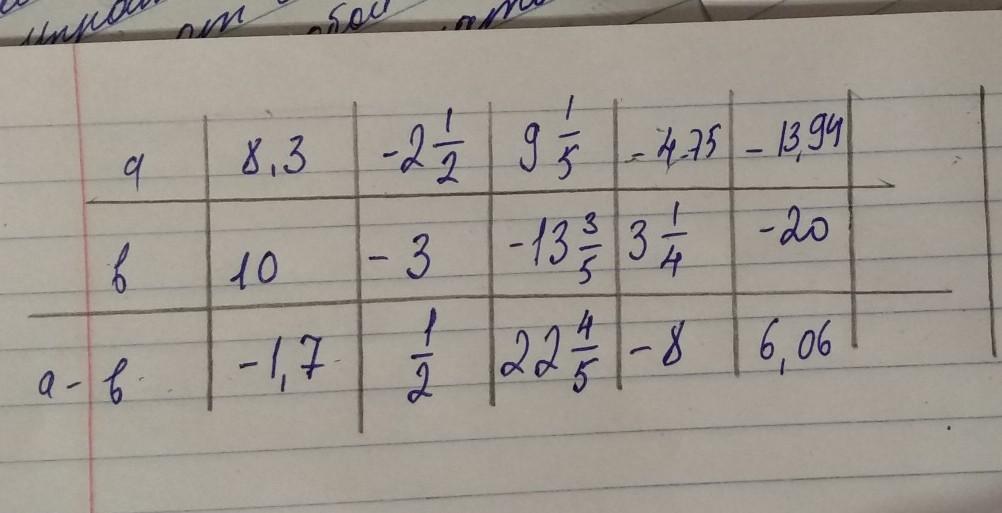 от обой
a 8,3 -2 1/2 9 1/5 -4,75 -13,94
в 10 -3 -13 3/5 3 1/4 -20
a - в -1,7 1/2 22 4/5 -8 6,06